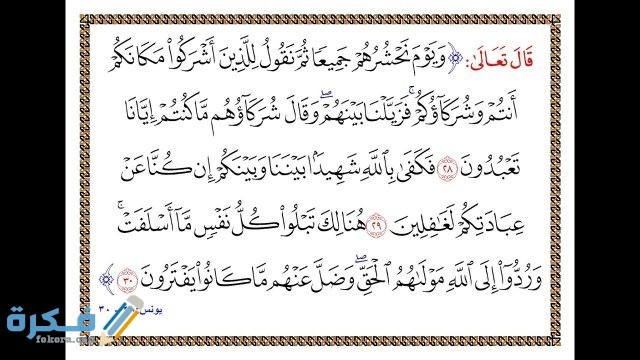 قَالَ تَعَالَىٰ: ﴿وَيَوْمَ نَحْشُرُهُمْ جَمِيعًا ثُمَّ نَقُولُ لِلَّذِينَ أَشْرَكُوا۟ مَكَانَكُمْ
أَنتُمْ وَشُرَكَآؤُكُمْ ۚ فَزَيَّلْنَا بَيْنَهُمْ ۖ وَقَالَ شُرَكَآؤُهُم مَّا كُنتُمْ إِيَّانَا
تَعْبُدُونَ ٢٨ فَكَفَىٰ بِٱللَّهِ شَهِيدًۢا بَيْنَنَا وَبَيْنَكُمْ إِن كُنَّا عَنْ
عِبَادَتِكُمْ لَغَٰفِلِينَ ٢٩ هُنَالِكَ تَبْلُوا۟ كُلُّ نَفْسٍ مَّآ أَسْلَفَتْ ۚ
وَرُدُّوٓا۟ إِلَى ٱللَّهِ مَوْلَىٰهُمُ ٱلْحَقِّ ۖ وَضَلَّ عَنْهُم مَّا كَانُوا۟ يَفْتَرُونَ ٣٠﴾
يونس: ٣٠
فكرة
fokora.org